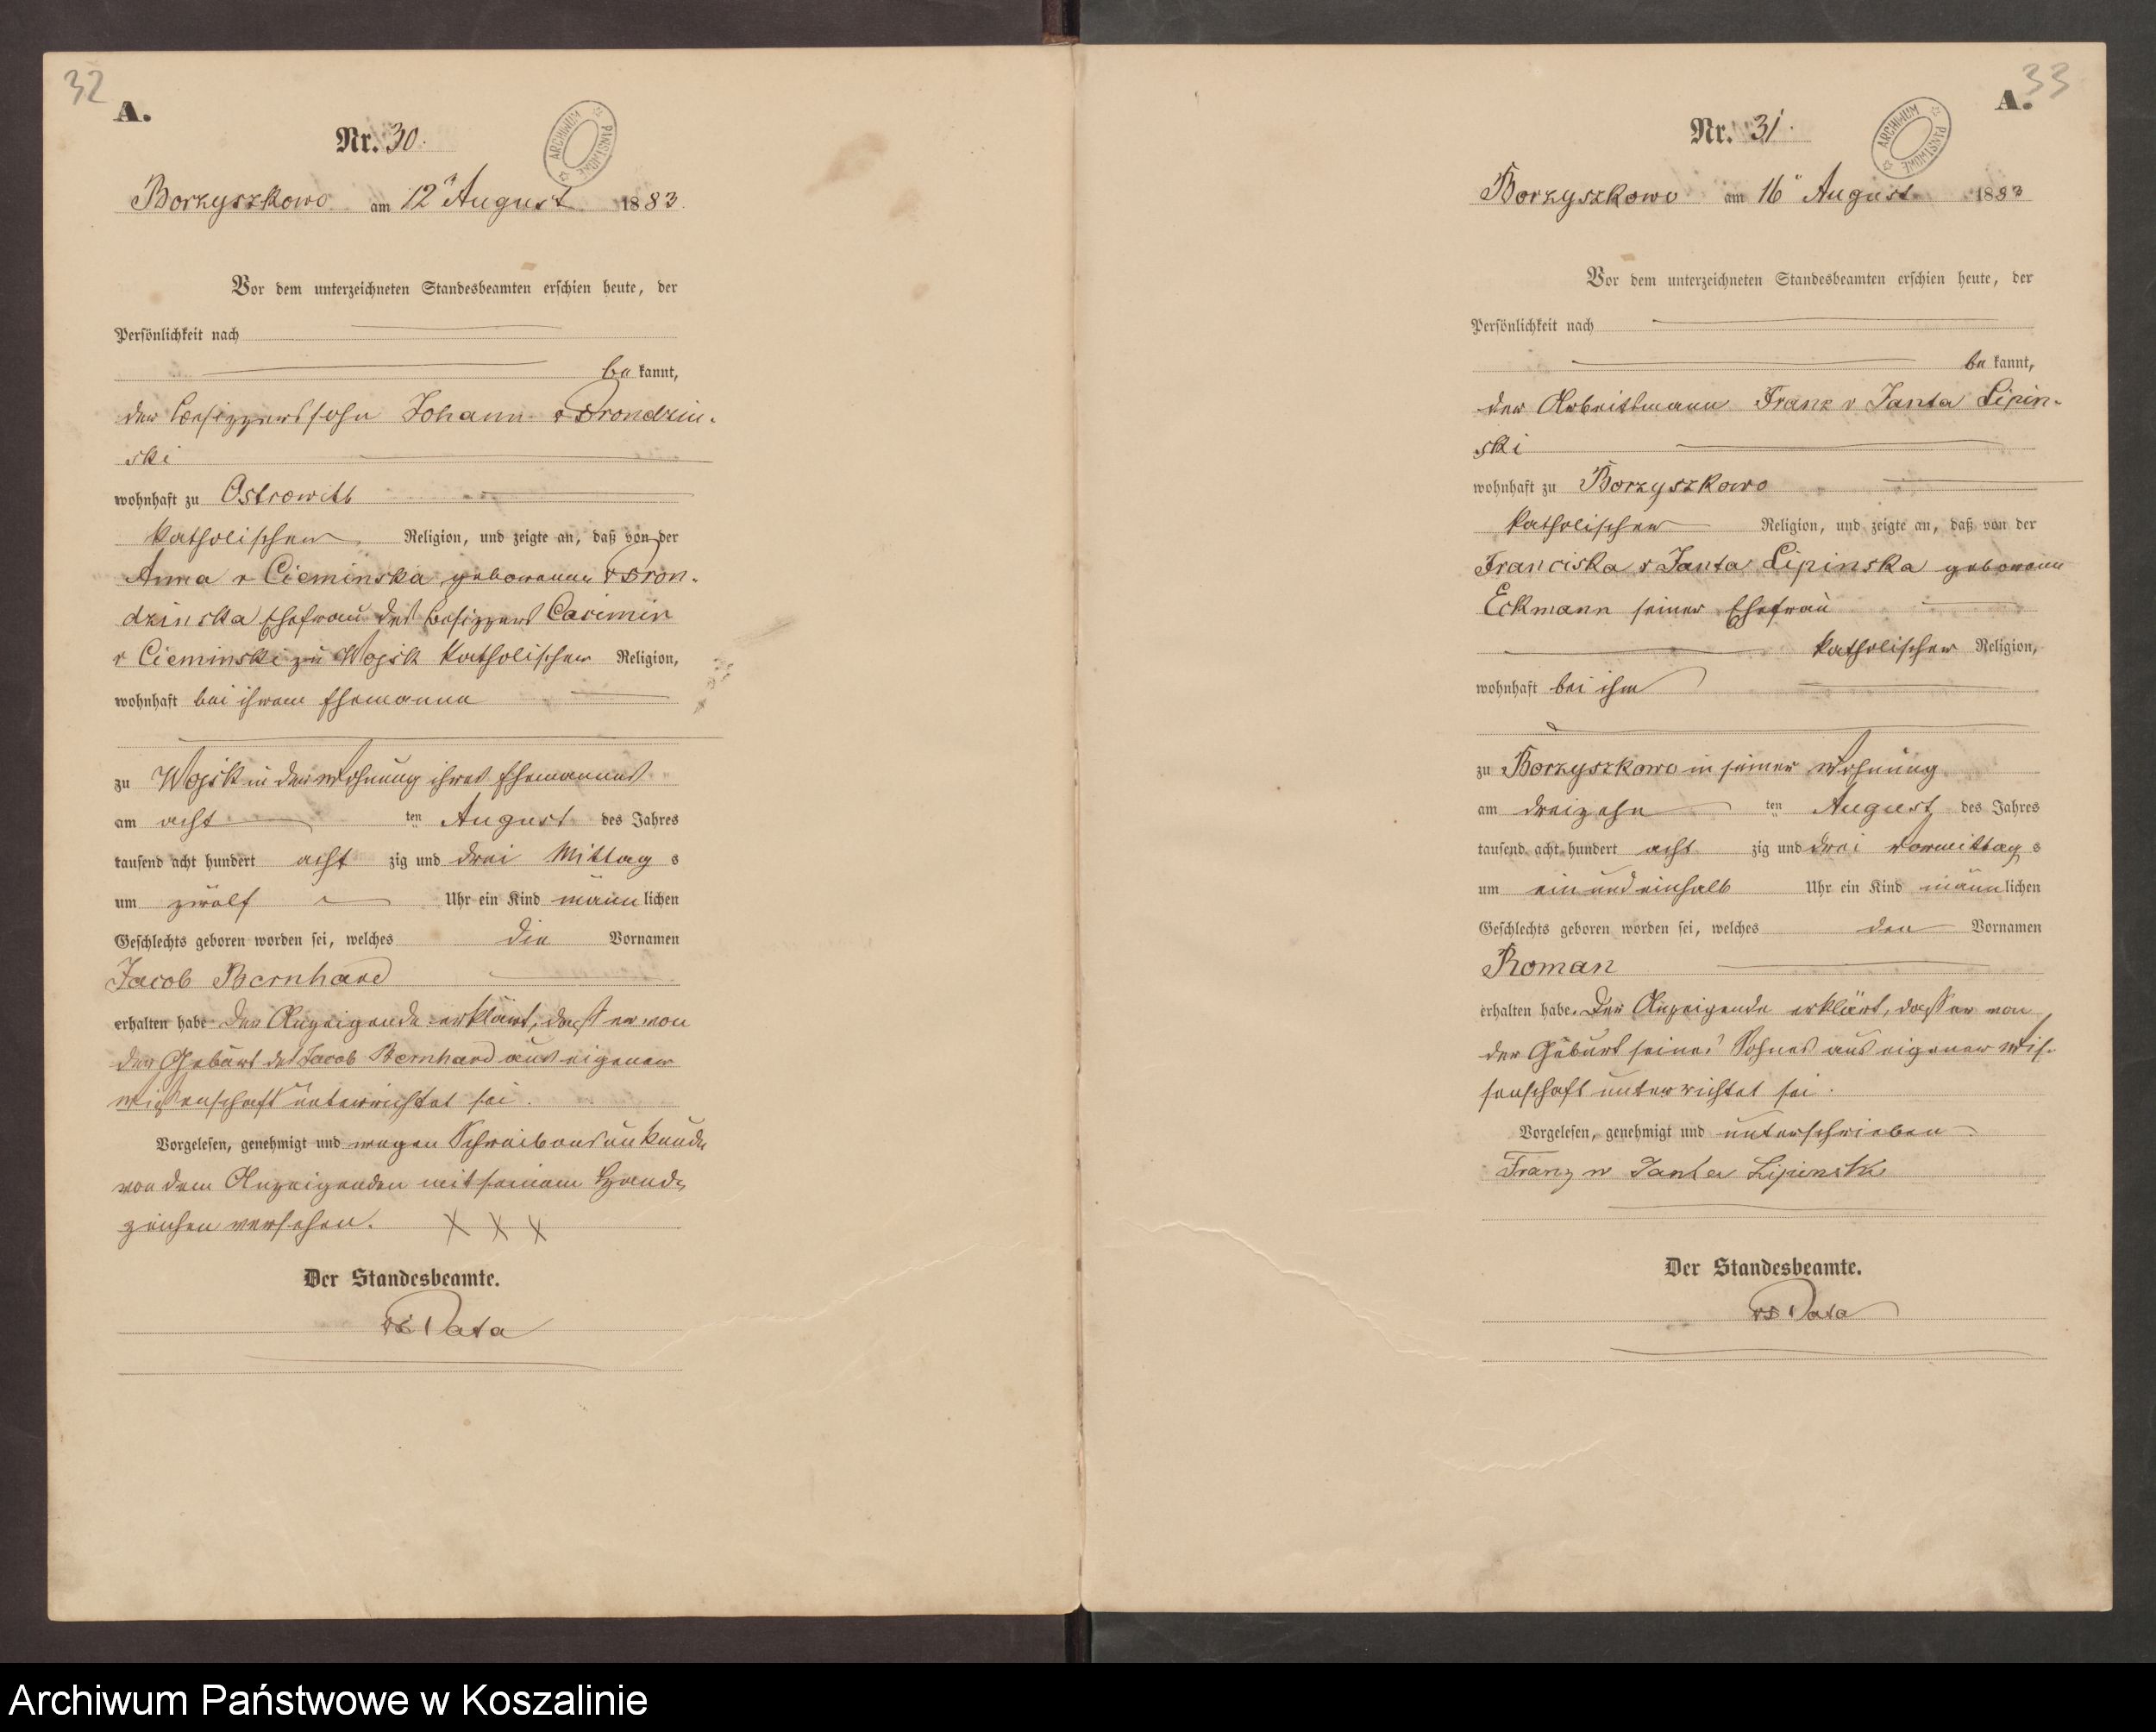 32
A.
Nr. 30.
ARCHIWUM PAŃSTWOWE
Borzyszkowo am 12 August 1883.
Vor dem unterzeichneten Standesbeamten erschien heute, der
Persönlichkeit nach
be kannt,
der Besitzerssohn Johann v Prondzin-
ski
wohnhaft zu Ostrowith
katholischer Religion, und zeigte an, daß von der
Anna v Cieminska geborenen v Pron-
dzinska Ehefrau des Besitzers Casimir
v Cieminski zu Wojsk katholischer Religion,
wohnhaft bei ihrem Ehemanne
zu Wojsk in der Wohnung ihres Ehemannes
am acht ten August des Jahres
tausend acht hundert acht zig und drei Mittag s
um zwölf Uhr ein Kind männ lichen
Geschlechts geboren worden sei, welches die Vornamen
Jacob Bernhard
erhalten habe Der Anzeigende erklärt, dass er von
der Geburt des Jacob Bernhard aus eigener
Wissenschaft unterrichtet sei.
Vorgelesen, genehmigt und wegen Schreibensunkunde
von dem Anzeigenden mit seinem Hand-
zeichen versehen. X X X
Der Standesbeamte.
Data
33
A.
Nr. 31.
ARCHIWUM PAŃSTWOWE
Borzyszkowo am 16 August 1883
Vor dem unterzeichneten Standesbeamten erschien heute, der
Persönlichkeit nach
be kannt,
der Arbeitsmann Franz v Janta Lipin-
ski
wohnhaft zu Borzyszkowo
katholischer Religion, und zeigte an, daß von der
Franciska v Janta Lipinska geborenen
Eckmann seiner Ehefrau
katholischer Religion,
wohnhaft bei ihm
zu Borzyszkowo in seiner Wohnung
am dreizehn ten August des Jahres
tausend acht hundert acht zig und drei Vormittag s
um ein und einhalb Uhr ein Kind männ lichen
Geschlechts geboren worden sei, welches den Vornamen
Roman
erhalten habe. Der Anzeigende erklärt, dass er von
der Geburt seines Sohnes aus eigener Wis-
senschaft unterrichtet sei.
Vorgelesen, genehmigt und unterschrieben
Franz v Janta Lipinski
Der Standesbeamte.
Data
Archiwum Państwowe w Koszalinie